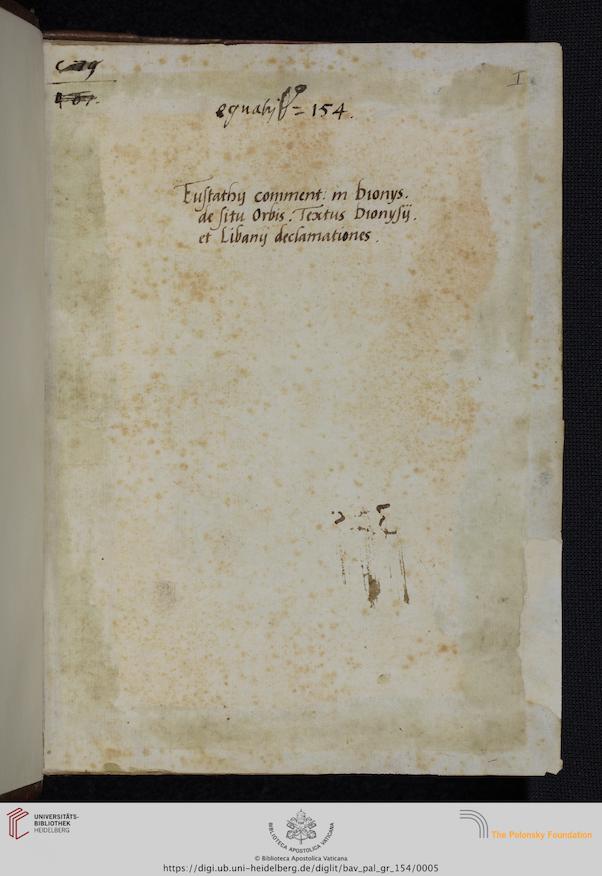 C. 19
I
= 154.
Eustathij comment: in Dionys.
de situ Orbis. Textus Dionysij.
et Libanij declamationes.
UNIVERSITÄTS-
BIBLIOTHEK
HEIDELBERG
BIBLIOTECA APOSTOLICA VATICANA
The Polonsky Foundation
© Biblioteca Apostolica Vaticana
https://digi.ub.uni-heidelberg.de/diglit/bav_pal_gr_154/0005